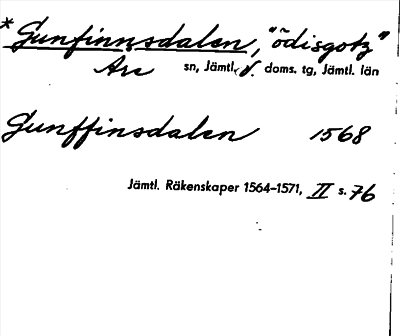 * Gunfinnsdalen, "ödisgotz"
Are sn, Jämtl. V. doms. tg, Jämtl. län
Gunffinsdalen 1568
Jämtl. Räkenskaper 1564-1571, II s. 76